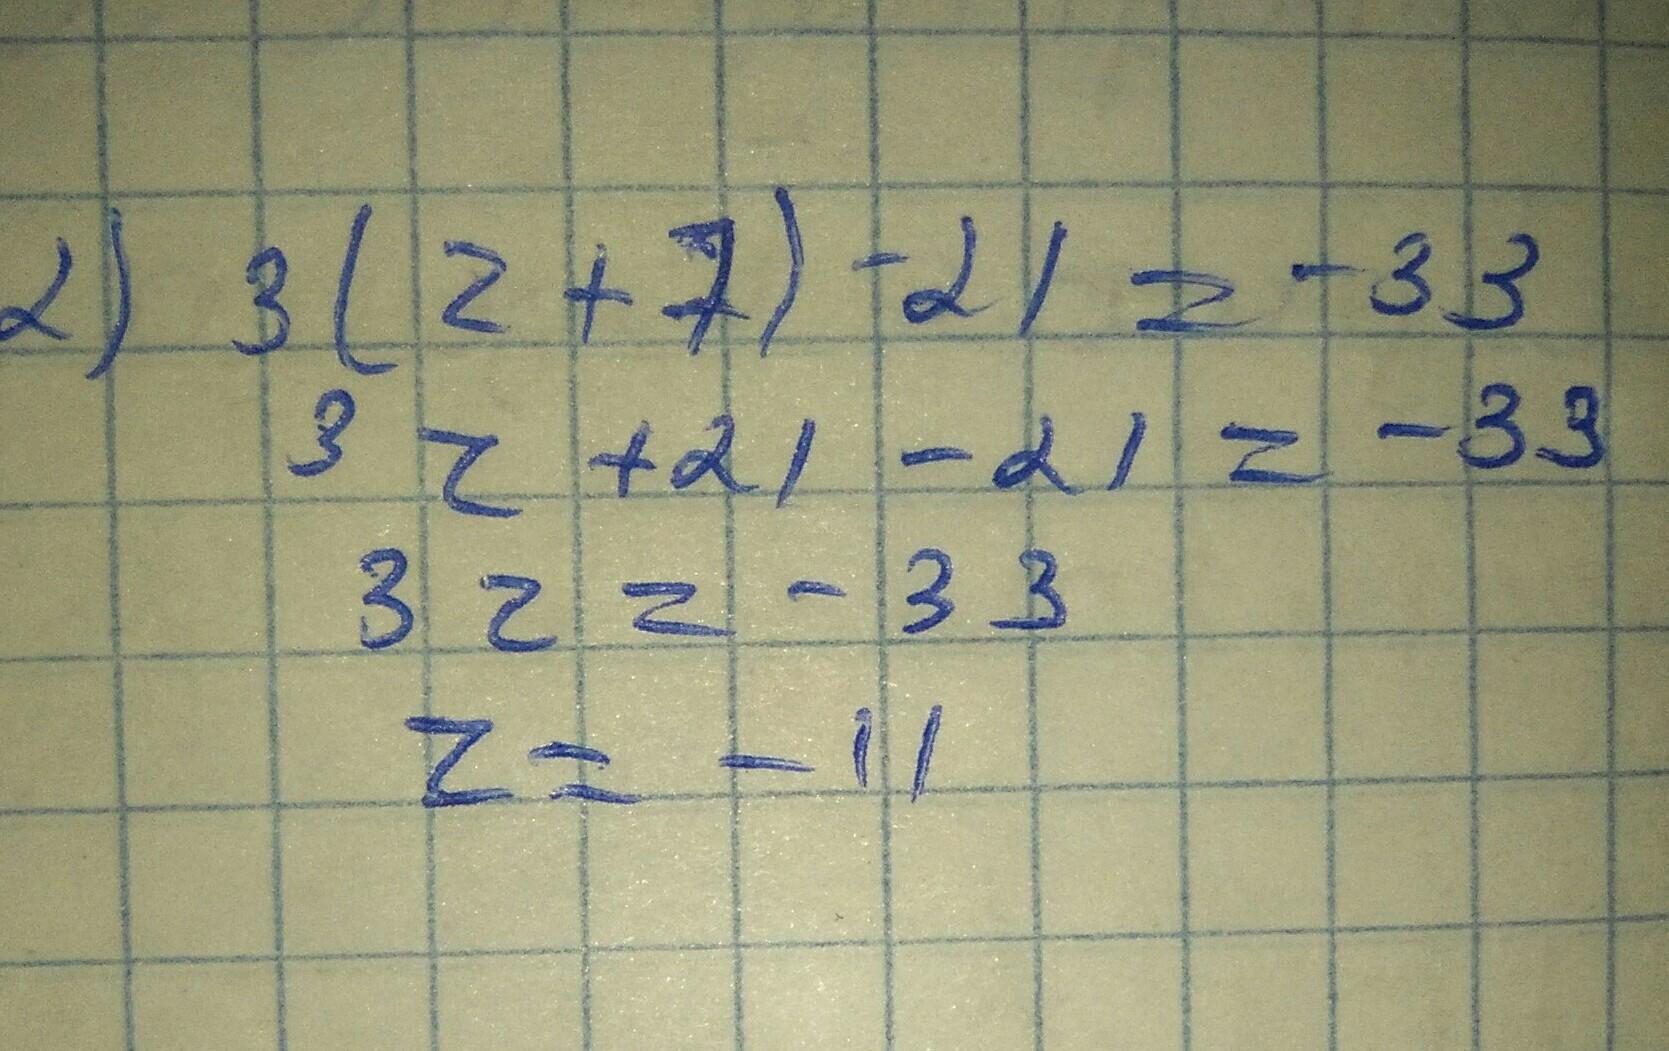 2) 3(z+7)-21=-33
3z+21-21=-33
3z=-33
z=-11